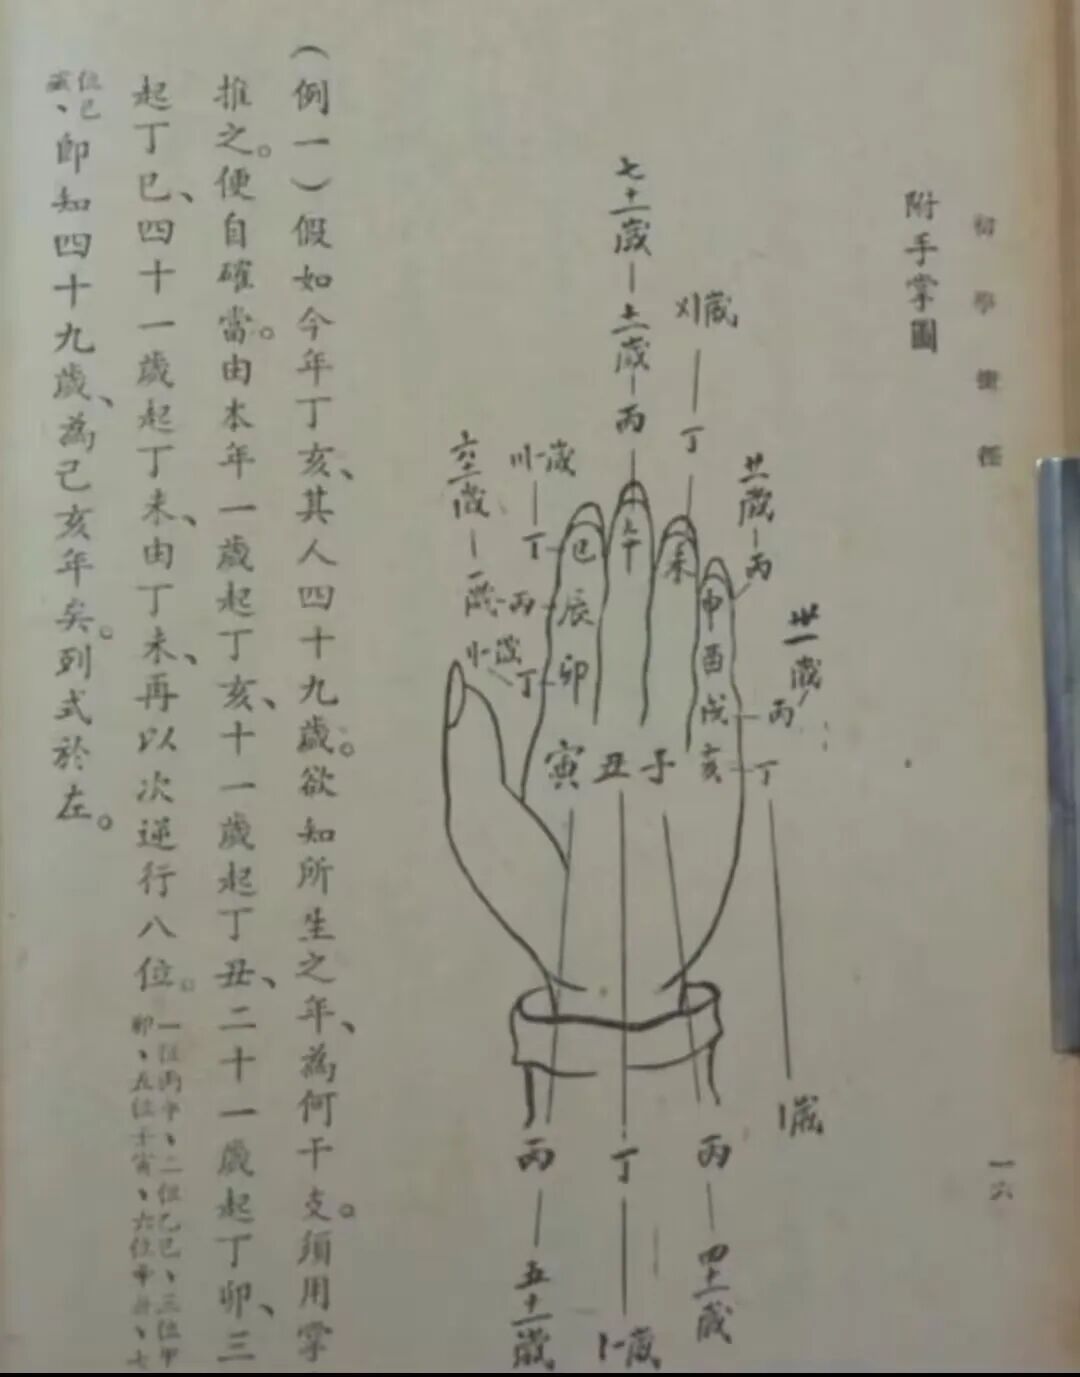 初學捷徑
一六
附手掌圖
七十一歲
十一歲
丙
〤〡歲
丁
廿一歲
丙
卅一歲
丙
丁
〡歲
六十一歲
一歲
丙
〣〡歲
丁
〢〡歲
丁
巳
午
未
申
辰
酉
卯
戌
寅
丑
子
亥
丙
丁
丙
五十一歲
〡〡歲
四十一歲
(例一)假如今年丁亥、其人四十九歲。欲知所生之年、為何干支。須用掌
推之。便自確當。由本年一歲起丁亥、十一歲起丁丑、二十一歲起丁卯、三
起丁巳、四十一歲起丁未、由丁未、再以次逆行八位。
一位丙午、二位乙巳、三位甲
卯、五位壬寅、六位辛丑、七
位己
歲、即知四十九歲、為己亥年矣。列式於左。